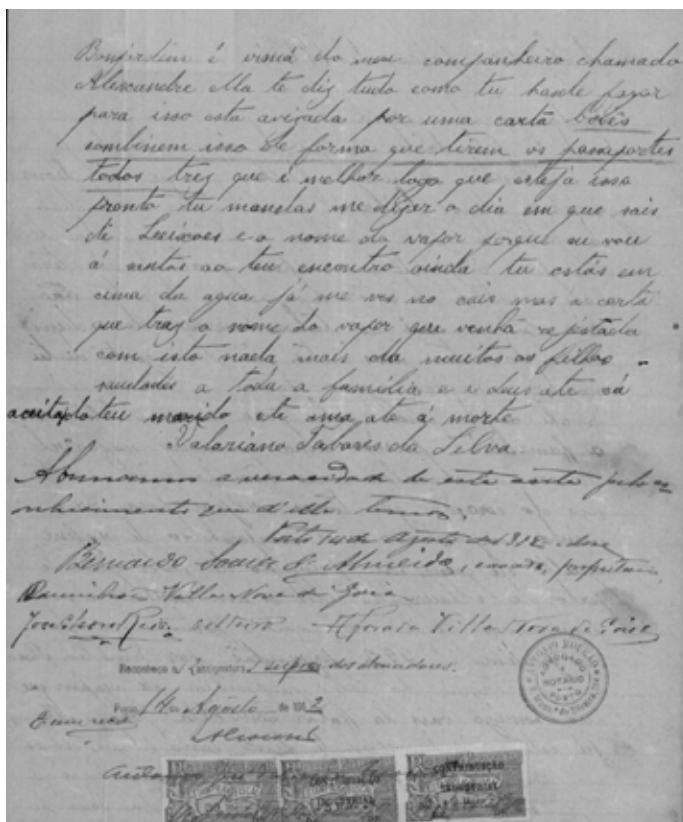 Bomjardim é irmá do meu companheiro chamado
Alexandre ella te diz tudo como tu hasde fazer
para isso esta avizada por uma carta Vocês
combinem isso de forma que tirem os passaportes
todos trez que é melhor logo que esteja isso
pronto tu mandas me dizer o dia em que sais
de Leixoes e o nome do vapor porque eu vou
á santos ao teu encontro ainda tu estás em
cima da agua já me ves no cais mas a carta
que traz o nome do vapor que venha rejistada
com isto nada mais da muitos aos filhos
saudades a toda a familia e a deus até cá
aceita do teu marido ete ama até á morte
Valariano Tavares da Silva
Abonamos a veracidade de esta carta pelo co-
nhecimento que d'ella temos.
Porto 14 de Agosto de 1912
Bernardo Soares d'Almeida, casado, proprietario
Villa Nova de Gaia
José solteiro Villa Nova de Gaia
Reconheço supra dos abonadores.
Porto, 14 de Agosto de 1912
ADVOGADO
E
NOTARIO
PORTO
CONTRIBUIÇÃO
INDUSTRIAL
CONTRIBUIÇÃO
INDUSTRIAL